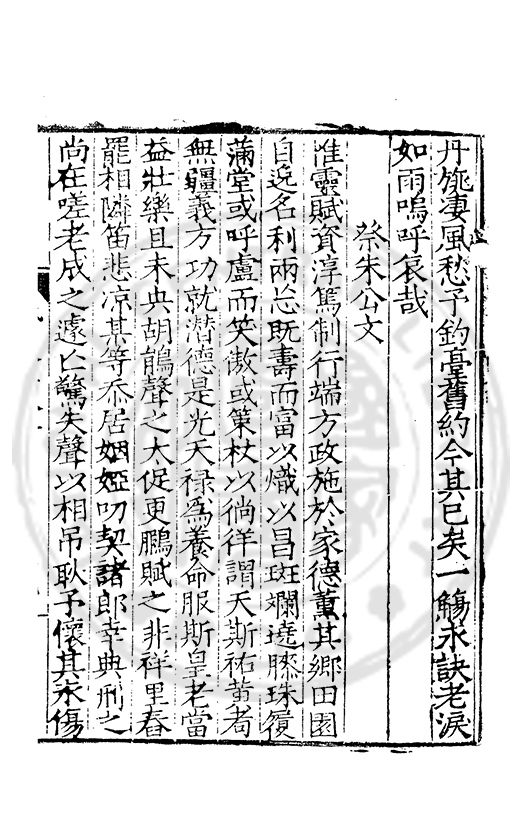 丹旐凄風愁予釣臺舊約今其已矣一觴永訣老淚
如雨嗚呼哀哉
祭朱公文
惟靈賦資淳篤制行端方政施於家德薰其鄉田園
自逸名利兩忘既壽而富以熾以昌斑斕遶膝珠履
滿堂或呼盧而笑傲或策杖以徜徉謂天斯祐黃耇
無疆義方功就潛德是光天祿為養命服斯皇老當
益壯樂且未央胡鶴聲之太促更鵩賦之非祥里舂
罷相隣笛悲凉某等忝居姻婭叨契諸郎幸典刑之
尚在嗟老成之遽亡驚失聲以相吊耿予懷其永傷